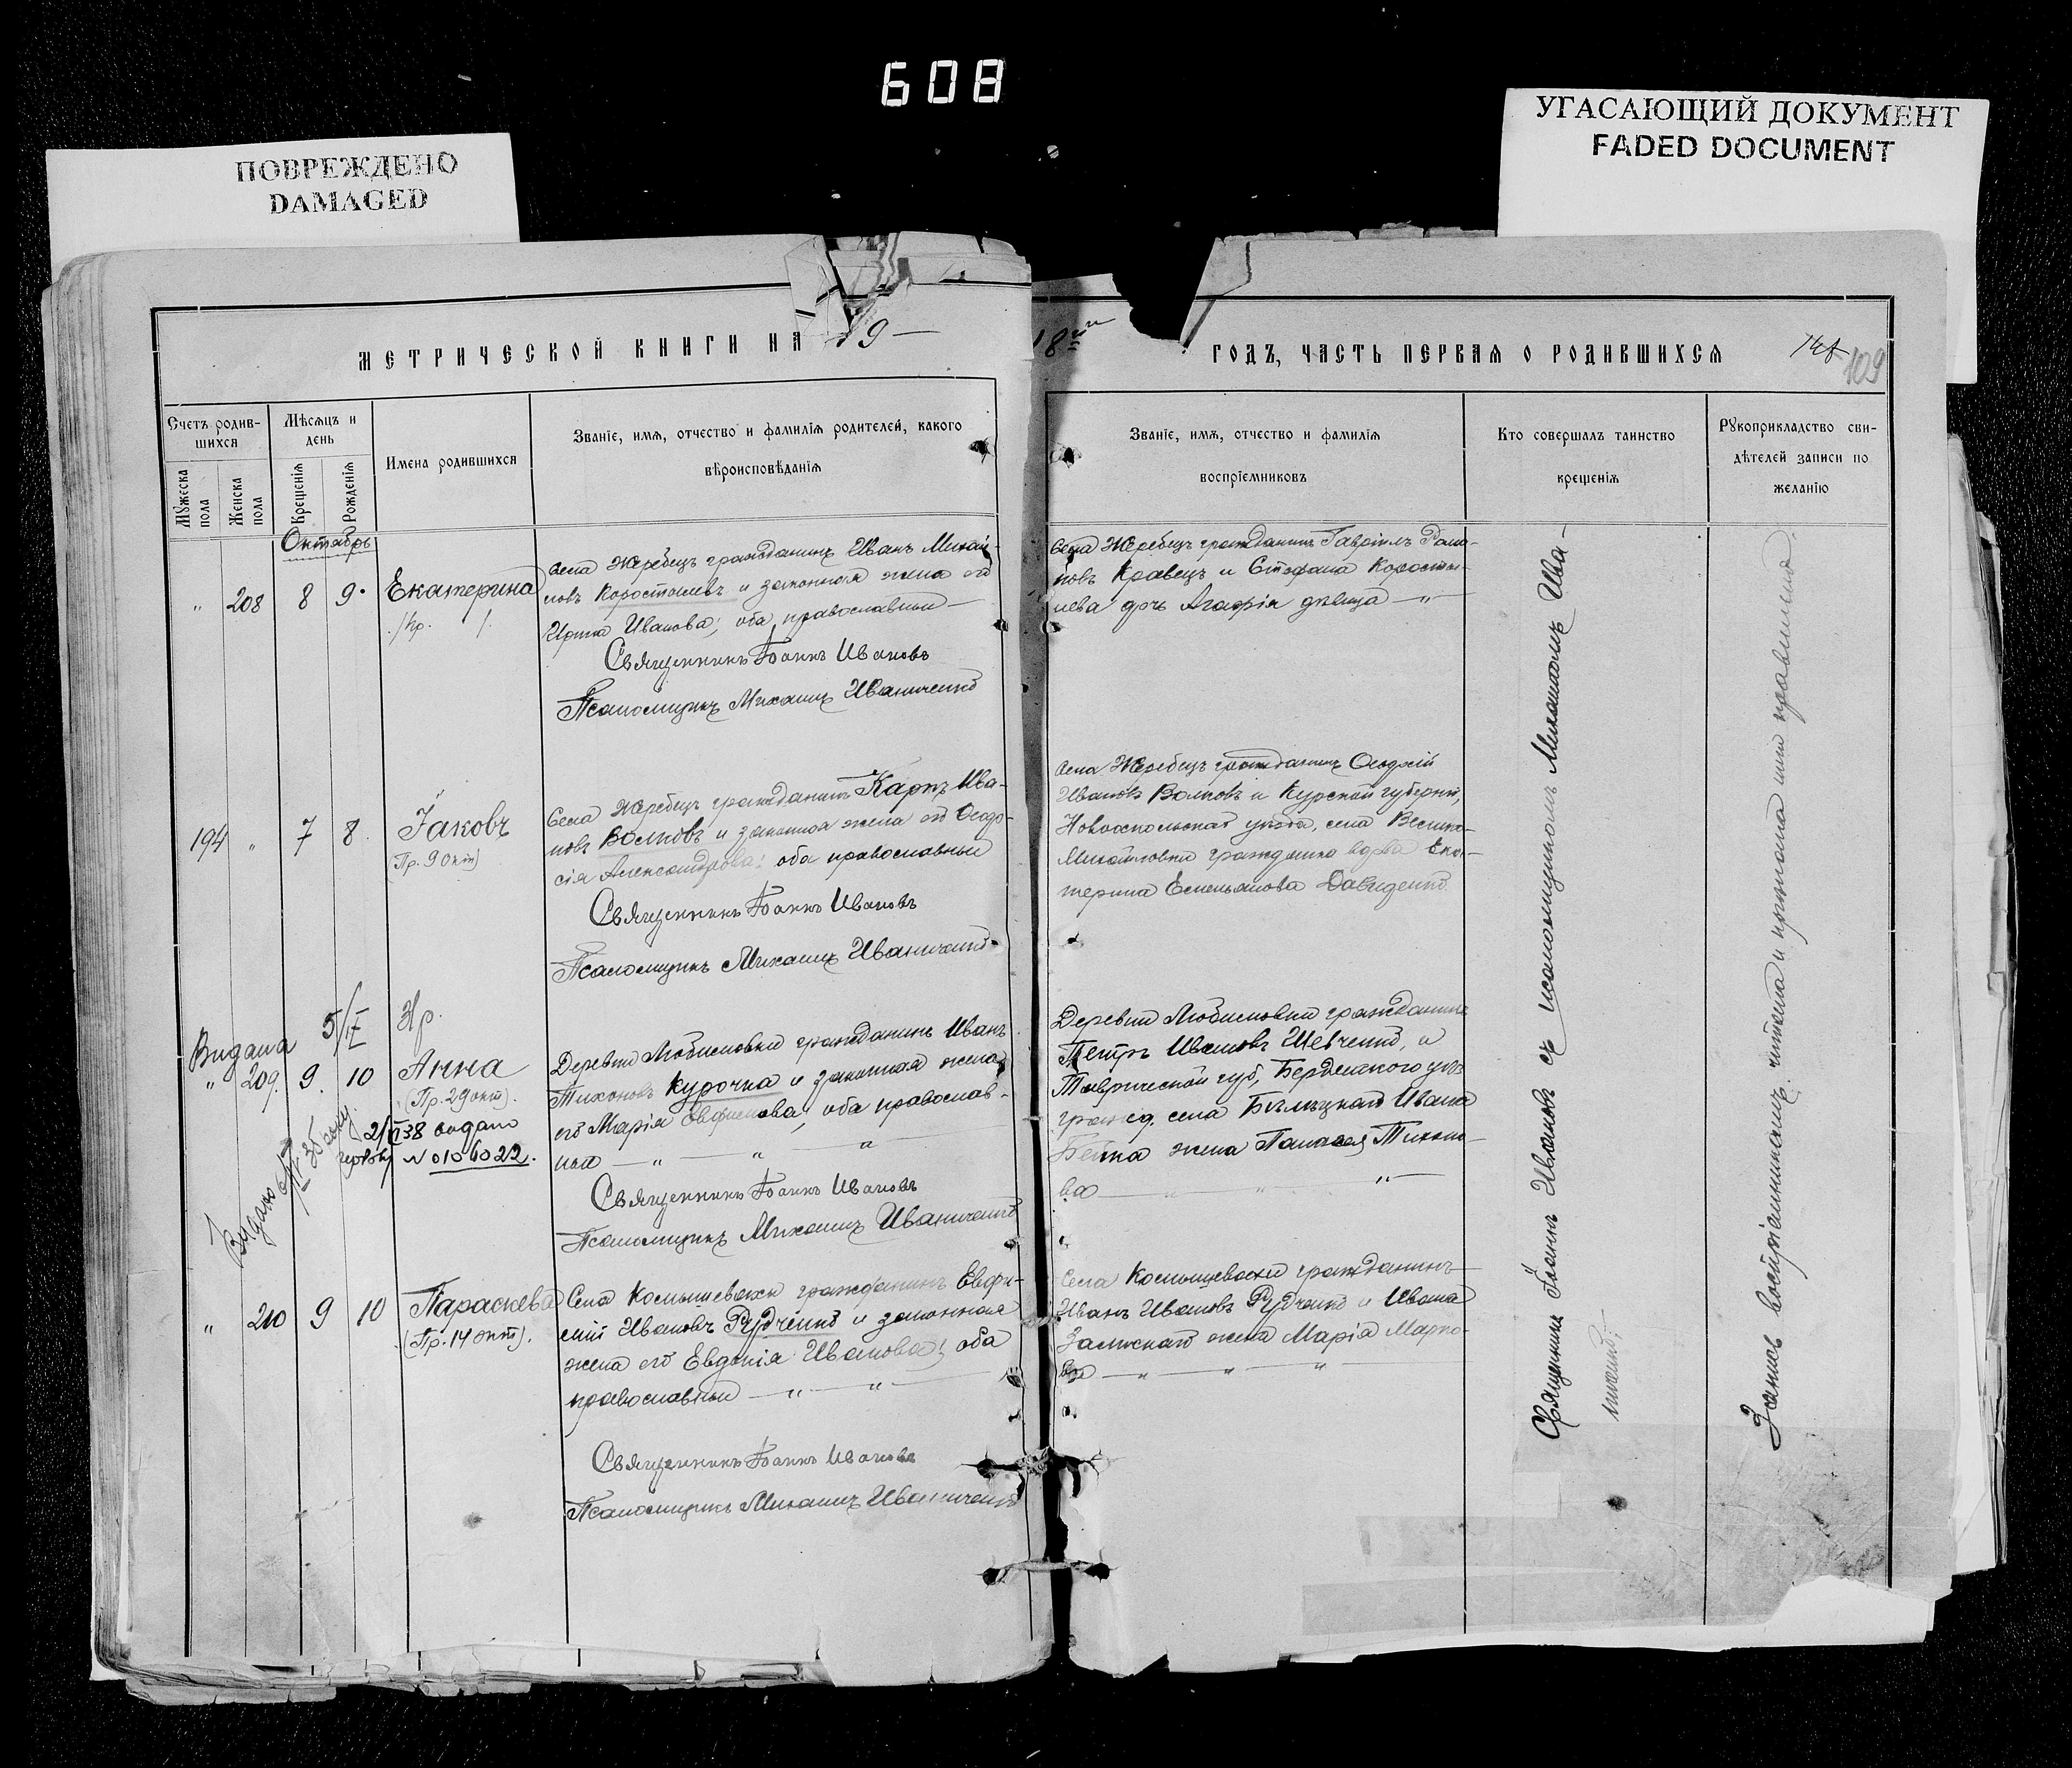 608
ПОВРЕЖДЕНО
DAMAGED
УГАСАЮЩИЙ ДОКУМЕНТ
FADED DOCUMENT
МЕТРИЧЕСКОЙ КНИГИ НА 19 —
Счетъ родив-
шихся
Мѣсяцъ и
день
Мужеска
пола
Женска
пола
Крещенія
Рожденія
Имена родившихся
Званіе, имя, отчество и фамилія родителей, какого
вѣроисповѣданія
Октябрь
" 208 8 9 Екатерина
Села Жеребецъ гражданинъ Иванъ Михай-
ловъ Коростылевъ и законная жена его
Ирина Иванова; оба православные
Священникъ Іоаннъ Ивановъ
Псаломщикъ Михаилъ Иваниченко
194 " 7 8 Іаковъ
(Пр. 9 окт)
Села Жеребецъ гражданинъ Карпъ Ива-
новъ Волковъ и законная жена его Ѳеодо-
сія Александрова; оба православные
Священникъ Іоаннъ Ивановъ
Псаломщикъ Михаилъ Иваниченко
5/IV
Видана
" 209. 9. 10 Анна
(Пр. 29 окт).
38 видано
N 0106022.
Видано
Деревни Любимовки гражданинъ Иванъ
Тихоновъ Курочка и законная жена
его Марія Евфимова; оба православ-
ные — " — " — "
Священникъ Іоаннъ Ивановъ
Псаломщикъ Михаилъ Иваниченко
" 210 9 10 Параскева
(Пр. 14 окт).
Села Комышевахи гражданинъ Евфи-
мій Ивановъ Рудченко и законная
жена его Евдокія Иванова; оба
православные — " — "
Священникъ Іоаннъ Ивановъ
Псаломщикъ Михаилъ Иваниченко
18 ГОДЪ, ЧАСТЬ ПЕРВАЯ О РОДИВШИХСЯ
109
Званіе, имя, отчество и фамилія
воспріемниковъ
Кто совершалъ таинство
крещенія
Рукоприкладство сви-
дѣтелей записи по
желанію
Села Жеребецъ гражданинъ Гавріилъ Рома-
новъ Кравецъ и Стефана Коросты-
лева дочь Агафія дѣвица — "
Села Жеребецъ гражданинъ Ѳеодосій
Ивановъ Волковъ и Курской губерніи,
Новооскольскаго уѣзда, села Велико-
Михайловки гражданка вдова Ека-
терина Емельянова Давиденко
Деревни Любимовки гражданинъ
Петръ Ивановъ Шевченко, и
Таврической губ, Бердянскаго уѣз
гражд. села Ивана
жена Тихоно-
ва — " — " — "
Села Комышевахи гражданинъ
Иванъ Ивановъ Рудченко и Ивана
жена Марія Марко-
ва — " — " — "
Священникъ Іоаннъ Ивановъ съ псаломщикомъ Михаиломъ Ива-
ниченко
Запись воспріемникамъ читана и признана ими правильною.